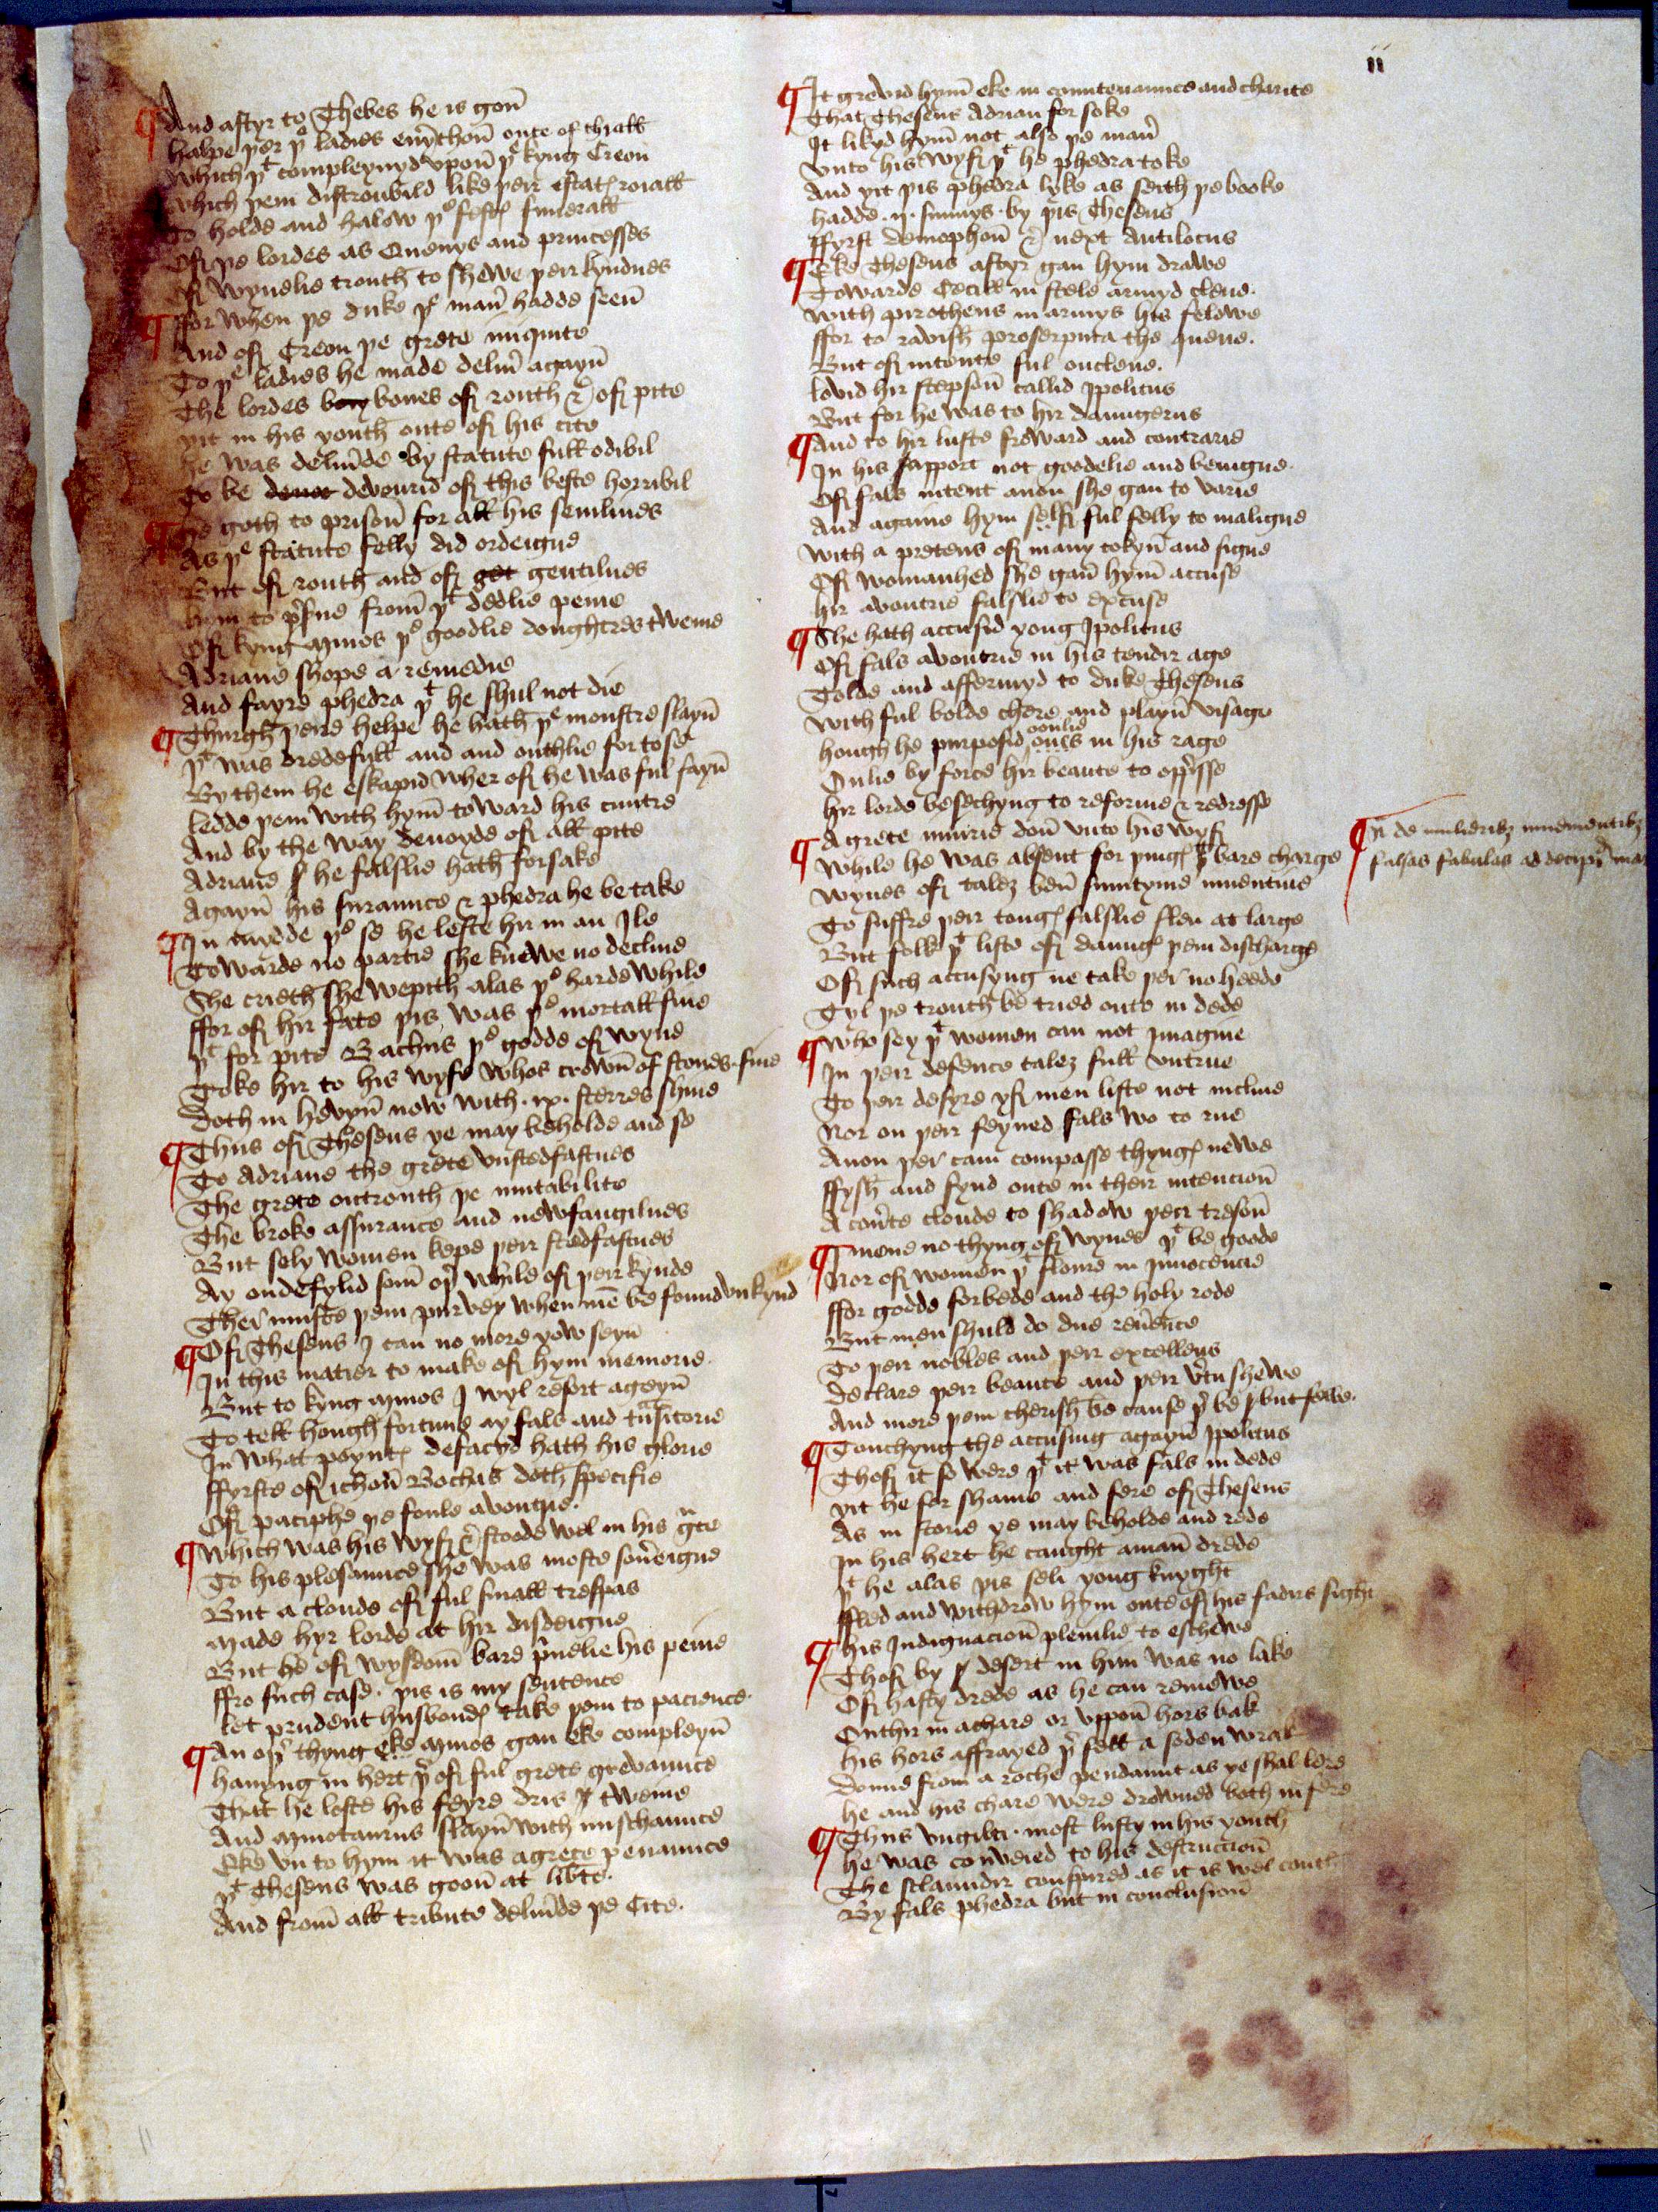 And aftyr to Thebes he is gon̄
halpe þer þe ladies eu̾ychon̄ oute of thrall
which þt compleynyd vpon̄ þe kyng Creon
which þem distroubild like þeir estatꝭ roiall
To holde and halow þe festꝭ funerall
Of þe lordes as Quenys and princesses
Of wynelie trouth to shewe þeir kyndnes
¶ ffor when þe duke þe man̄ hadde seen̄
And of Creon þe grete iniquite
To þe ladies he made delin̾ agayn̄
The lordes bony bones of routh & of pite
yit in his youth oute of his cite
he was delin̾de by statute full odibil
To be deuor devourid of this beste horribil
¶ he goth to prison̄ for all his semlines
As þe statute felly did ordeigne
But of routh and of get gentilnes
hym to p̾sue from̄ þt dedlie peine
Of kyng mynos þe goodlie doughtres tweine
Adriane shope a remedie
And fayre phedra þt he shul not die
¶ Thurgh þeire helpe he hath þe monstre slayn̄
þt was dredefull and and outhlie for to se
By them he eskapid wher of he was ful fayn̄
ledde þem with hym̄ toward his cuntre
And by the way devoyde of all pite
Adriane he falslie hath forsake
Agayn̄ his surannce & phedra he be take
¶ In mydde þe se he lefte hir in an Ile
Towarde no partie she knewe no decline
She crieth she wepith alas þe harde while
ffor of hir fate þis was þe mortall fine
þt for pite Bachus þe godde of wyne
Toke hir to his wyfe whos crown̄ of stones fine
doth in hevyn̄ now with .ix. sterres shine
¶ Thus of Theseus ye may beholde and se
To Adriane the grete vnstedfastnes
The grete ontrouth þe mutabilite
The broke assurance and newfangilnes
But sely women kepe þeir stedfastnes
Ay ondefylid som̄ oþ̾ while of þeir kynde
Ther muste þem purvey when mē be found vnkynd
¶ Of Theseus I can no more yow seyn̄
In this matier to make of hym memorie.
But to kyng mynos I wyl resort ageyn̄
To tell hough fortune ay fals and tnsitorie
In what poyntꝭ defacyd hath his glorie
ffyrste of ichon̄ Bochas doth specifie
Of paciphe þe foule avoutrie.
¶ which was his wyf & stoode wel in his g̾ce
To his plesaunce she was moste sou̾eigne
But a cloude of ful small trespas
made hyr lorde at hir disdeigne
But he of wysdom̄ bare p̾uelie his peine
ffro such case. þis is my sentence
let prudent husbondꝭ take þem to pacience.
¶ An oþ̾ thyng eke mynos gan eke compleyn̄
hauyng in hert þ̾ of ful grete grevaunce
That he loste his feyre dris tweine
And mynotaurus slayn̄ with mischaunce
Eke vn to hym it was a grete penaunce
þt Theseus was goon̄ at lib̾te.
And from̄ all tribute delin̾de þe Cite.
ii
¶ It grevid hym̄ eke in countenaunce and charite
That Theseus Adrian for soke
It likyd hym̄ not also þe man̾
vnto his wyf þt he phedra toke
And yit þis phedra lyke as seith þe booke
hadde .ii. sunnys. by þis Theseus
ffyrst demophon̄ & next Antilocus
¶ Eke Theseus aftyr gan hym drawe
Towarde Cecill in stele armyd clene.
with pirotheus in armys his felowe
ffor to ravish proserpina the quene.
But of intente ful onclene.
lovid hir stepson̄ callid Ipolitus
But for he was to hir daungerus
¶ And to hir luste froward and contrarie
In his rapport not goodelie and benigne.
Of fals intent anon she gan to varie
And againe hym self ful felly to maligne
with a pretens of many tokyn̄ and signe
Of womanhed she gan̄ hym̄ accuse
hir avoutrie falslie to excuse
¶ She hath accusid yong Ipolitus
Of fals avoutrie in his tendir age
Tolde and affermyd to duke Theseus
with ful bolde chere and playn̄ visage
hough he purposid oonlie onis in his rage
Onlie by force hir beaute to opp̾sse
hir lorde besechyng to reforme & redresse
¶ A grete iniurie don̄ vnto his wyf
while he was absent for þingꝭ þ̾ bare charge
wynes of talez ben̄ sumtyme inuentiue
To suffre þeir tongꝭ falslie flen at large
But folk þt liste of daungꝭ þem discharge
Of such accusyng ne take þer no heede
Tyl þe trouth be tried oute in dede
¶ who sey þt women can not ymagine
In þeir defence talez full vntrue
To þeir desyre yf men liste not incline
Nor on þeir feyned fals wo to rue
Anon þer can compasse thyngꝭ newe
ffysh and fynd oute in their intencion̄
A cou̾te cloude to shadow þeir treson̄
¶ I mene no thyng of wynes þt be goode
Nor of women þt floure in Innocencie
ffor godde forbede and the holy rode
But men shuld do due reu̾ence
To þeir nobles and þeir excellens
declare þeir beaute and þeir v̾tu shewe
And more þem cherish be cause þ̾ be but fewe.
¶ Touchyng the accusing agayn̄ Ipolitus
Thof it so were þt it was fals in dede
yit he for shame and fere of Theseus
As in storie ye may beholde and rede
In his hert he caught a man̾ drede
þt he alas þis seli yong knyght
ffled and withdrow hym oute of his fadirs sight
¶ his Indignacion̄ pleinlie to eschewe
Thof by desert in him was no lake
Of hasty drede as he can remewe
Outhir in a chare or vppon̄ hors bak
his hors affrayed þ̾ fell a soden wrak
doune from a roche pendaunt as ye shal lere
he and his chare were drowned both in fere
¶ Thus vngilti. most lusty in his youth
he was conveied to his destruccion̄
The sclaundir conspired as it is wel couth
By fals phedra but in conclusion̄
¶ N̄ de mulieribꝫ inuenientibꝫ
falsas fabulas ad decip